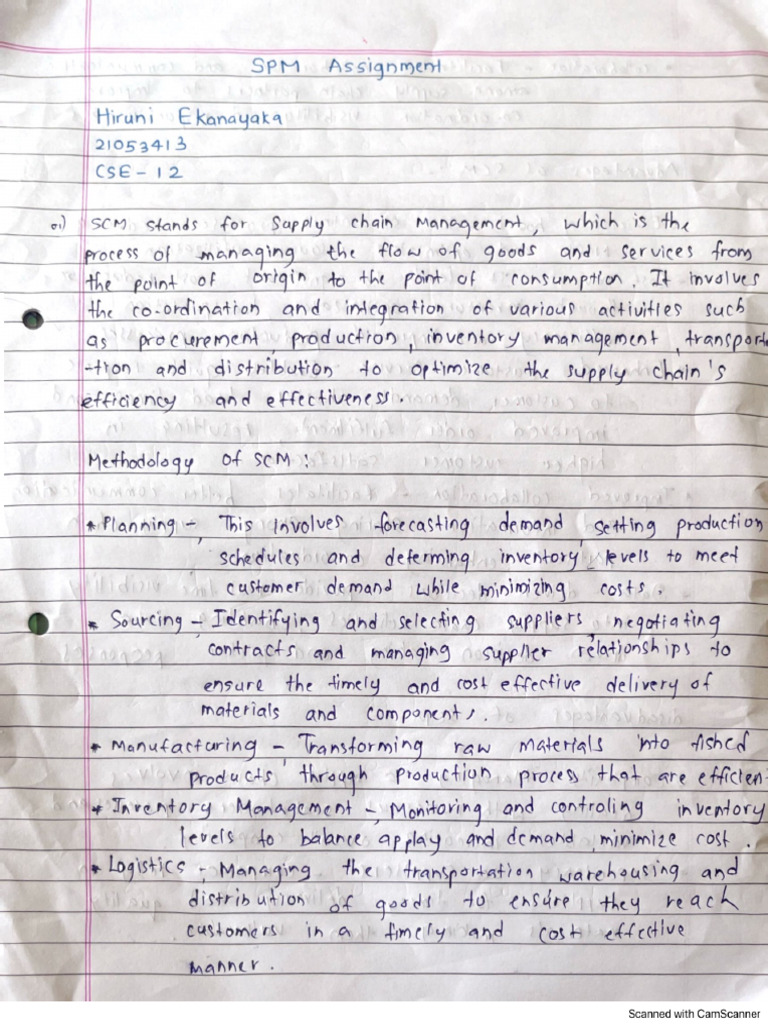 SPM Assignment
Hiruni Ekanayaka
21053413
CSE - 12
01) SCM stands for Supply chain Management, which is the
process of managing the flow of goods and services from
the point of origin to the point of consumption. It involves
the co-ordination and integration of various activities such
as procurement, production, inventory management, transporta
-tion and distribution to optimize the supply chain's
efficiency and effectiveness.
Methodology of SCM :
* Planning - This involves forecasting demand, setting production
schedules and deferming inventory levels to meet
customer demand while minimizing costs.
* Sourcing - Identifying and selecting suppliers, negotiating
contracts and managing supplier relationships to
ensure the timely and cost effective delivery of
materials and components.
* Manufacturing - Transforming raw materials into fished
products through production process that are efficient
* Inventory Management - Monitoring and controling inventory
levels to balance applay and demand minimize cost.
* Logistics - Managing the transportation warehousing and
distribution of goods to ensure they reach
customers in a timely and cost effective
manner.
Scanned with CamScanner